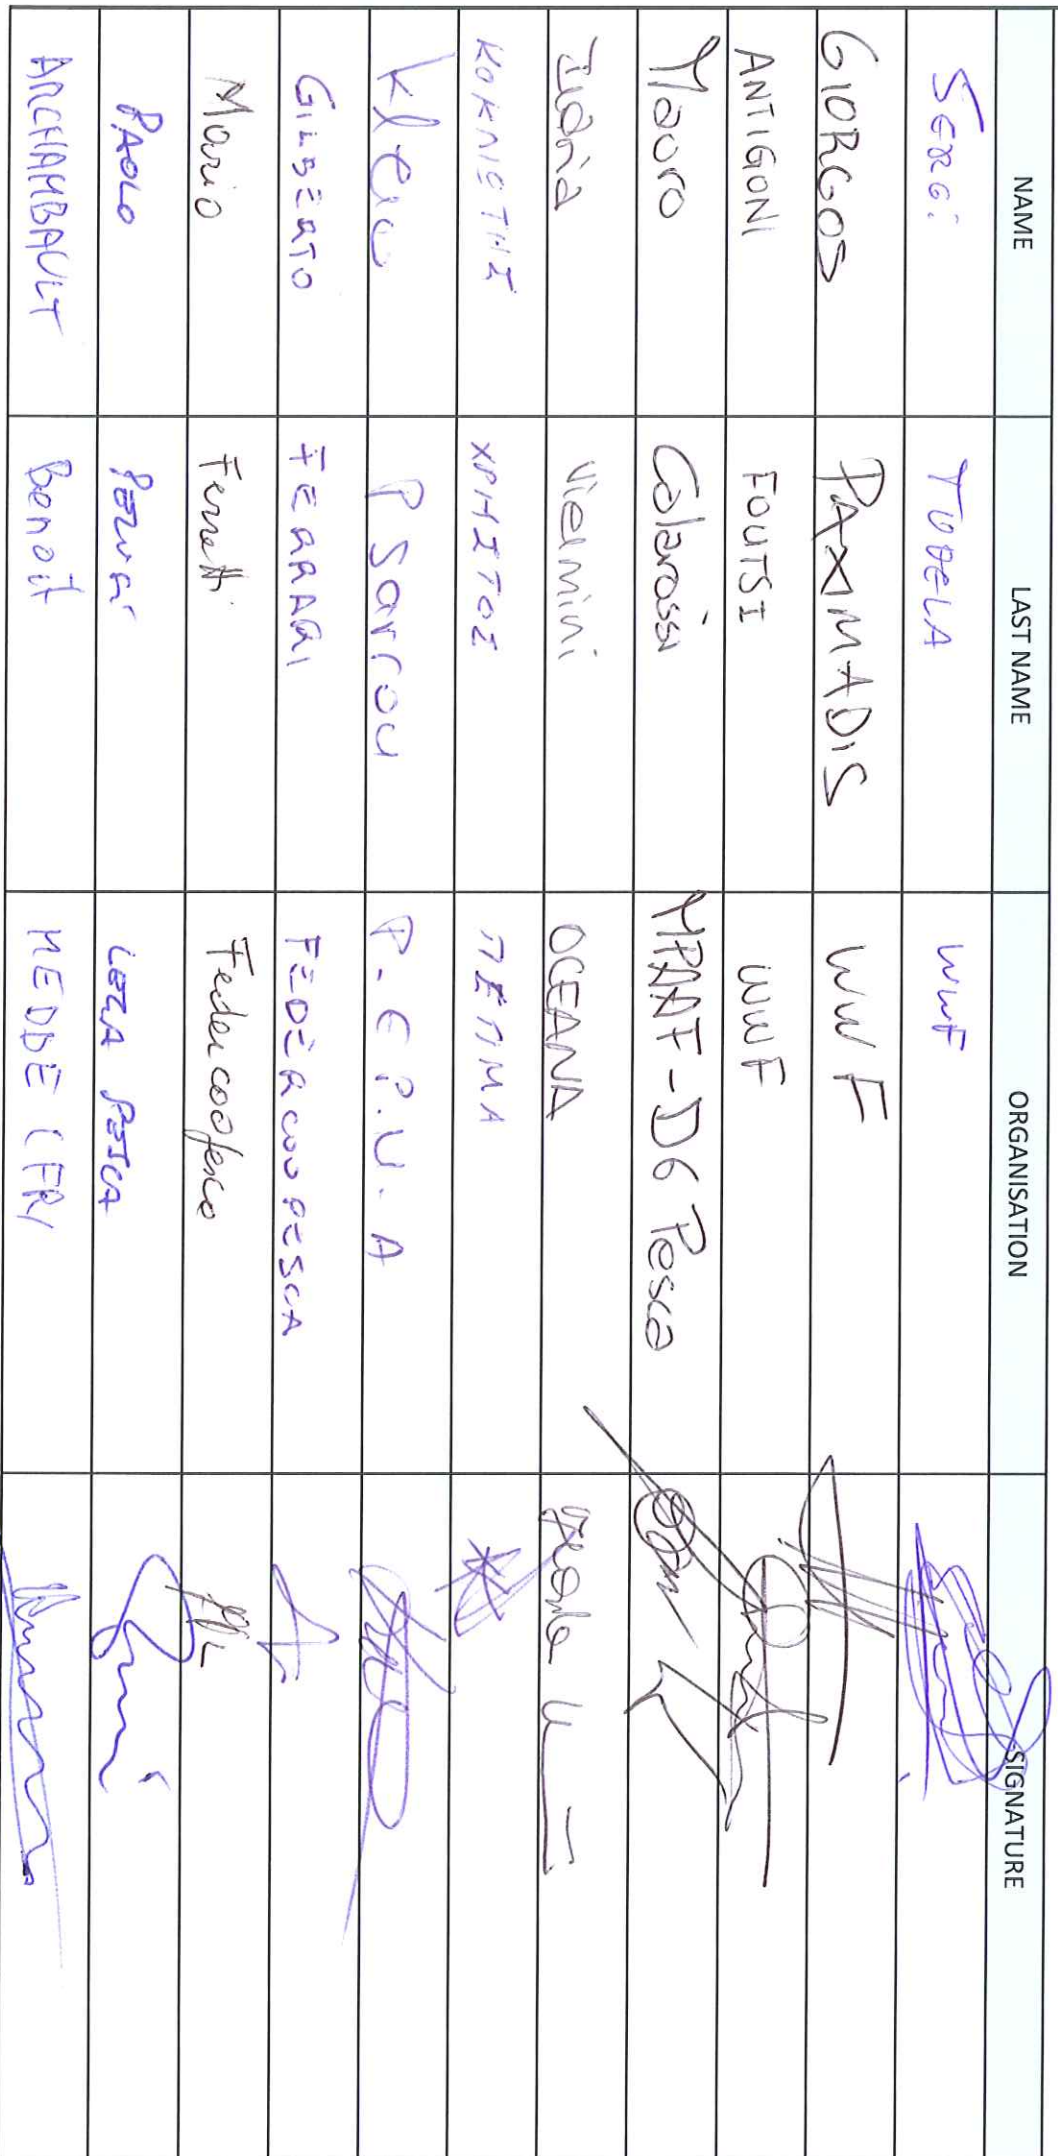 NAME LAST NAME ORGANISATION SIGNATURE
SERGi TUDELA WWF
GIORGOS PAXIMADIS WWF
ANTIGONI FOUTSI WWF
Mauro Colarossi MPAAF-DG Pesca
Ilaria Vielmini OCEANA
ΧΡΗΣΤΟΣ ΠΕΠΜΑ
Kleio Psarrou P.E.P.M.A
GILBERTO FERRARI FEDERCOOPESCA
Mario Ferretti Federcoopesca
PAOLO LEGA PESCA
ARCHAMBAULT Benoit MEDDE (FR)